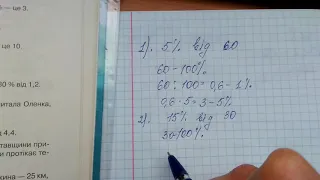 — це 3.
це 10.
0 % від 1,2.
итала Оленка,
д 4,4.
тавщини при-
и протікає те-
чка — 25 км,
1). 5% від 60
60 - 100%
60 : 100 = 0,6 - 1%
0,6 · 5 = 3 - 5%
2) 15% від 30
30-100%.